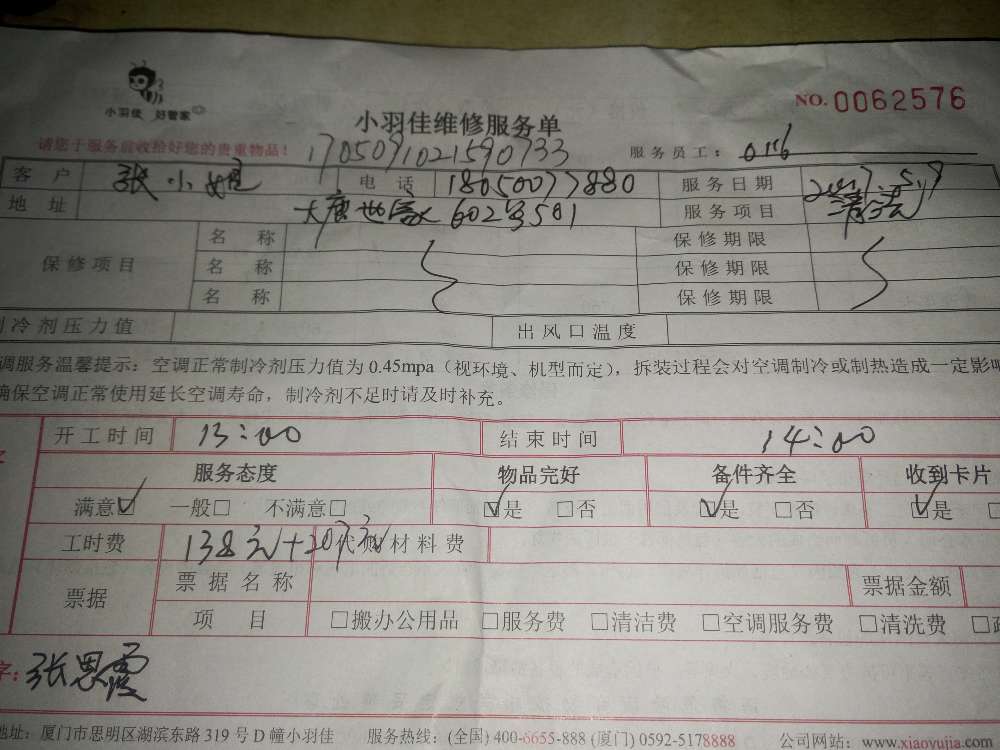 小羽佳 好管家
NO. 0062576
小羽佳维修服务单
请您于服务前收给好您的贵重物品! 1705091021590733 服务员工: 0116
客户 张小姐 电话 18050077880 服务日期 2017.5.9
地址 大唐世家 602号501 服务项目 清洗
保修项目 名称 保修期限
名称 保修期限
名称 保修期限
制冷剂压力值 出风口温度
调服务温馨提示: 空调正常制冷剂压力值为 0.45mpa (视环境、机型而定), 拆装过程会对空调制冷或制热造成一定影响
确保空调正常使用延长空调寿命, 制冷剂不足时请及时补充。
开工时间 13:00 结束时间 14:00
服务态度 物品完好 备件齐全 收到卡片
满意☑ 一般□ 不满意□ ☑是 □否 ☑是 □否 ☑是
工时费 138元+30元 代购材料费
票据 票据名称 票据金额
项目 □搬办公用品 □服务费 □清洁费 □空调服务费 □清洗费
字: 张思霞
地址: 厦门市思明区湖滨东路 319 号 D 幢小羽佳 服务热线: (全国) 400-6655-888 (厦门) 0592-5178888 公司网站: www.xiaoyujia.com